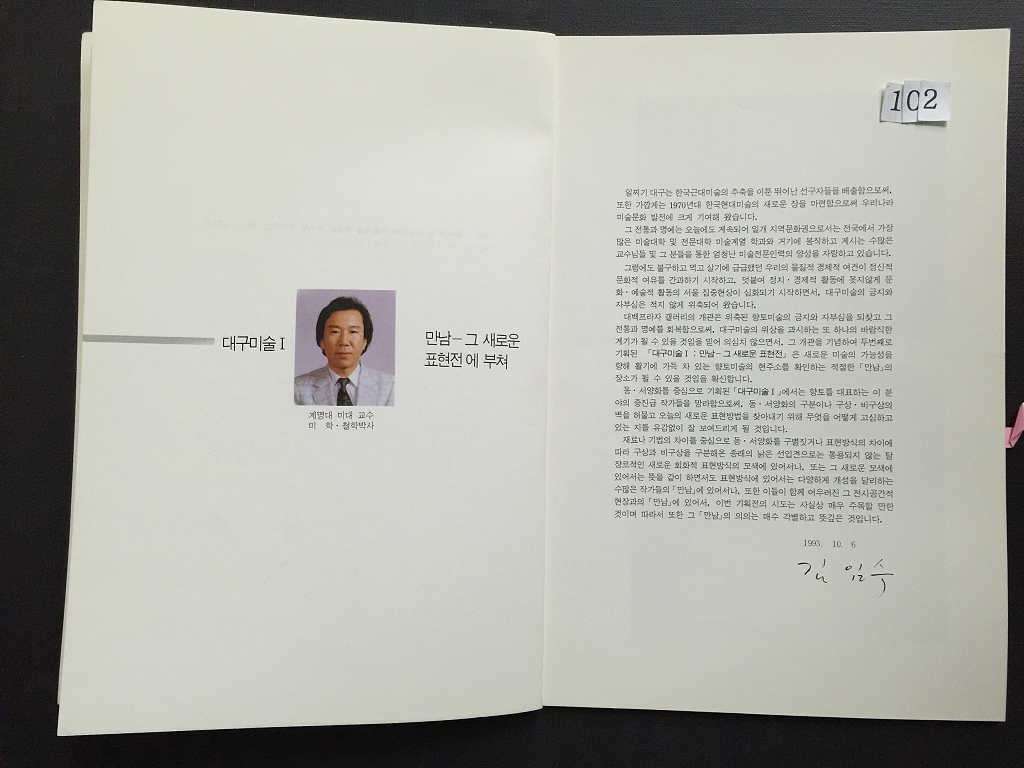 대구미술 I
만남 – 그 새로운
표현전에 부쳐
계명대 미대 교수
미 학 · 철학박사
102
일찌기 대구는 한국근대미술의 추축을 이룬 뛰어난 선구자들을 배출함으로써,
또한 가깝게는 1970년대 한국현대미술의 새로운 장을 마련함으로써 우리나라
미술문화 발전에 크게 기여해 왔습니다.
그 전통과 명예는 오늘에도 계속되어 일개 지역문화권으로서는 전국에서 가장
많은 미술대학 및 전문대학 미술계열 학과와 거기에 봉직하고 계시는 수많은
교수님들 및 그 분들을 통한 엄청난 미술전문인력의 양성을 자랑하고 있습니다.
그럼에도 불구하고 먹고 살기에 급급했던 우리의 물질적 경제적 여건이 정신적
문화적 여유를 간과하기 시작하고, 덧붙어 정치·경제적 활동에 못지않게 문
화·예술적 활동의 서울 집중현상이 심화되기 시작하면서, 대구미술의 긍지와
자부심은 적지 않게 위축되어 왔습니다.
대백프라자 갤러리의 개관은 위축된 향토미술의 긍지와 자부심을 되찾고 그
전통과 명예를 회복함으로써, 대구미술의 위상을 과시하는 또 하나의 바람직한
계기가 될 수 있을 것임을 믿어 의심치 않으면서, 그 개관을 기념하여 두번째로
기획된 「대구미술 I : 만남 – 그 새로운 표현전」은 새로운 미술의 가능성을
향해 활기에 가득 차 있는 향토미술의 현주소를 확인하는 적절한 「만남」의
장소가 될 수 있을 것임을 확신합니다.
동·서양화를 중심으로 기획된 「대구미술 I」에서는 향토를 대표하는 이 분
야의 중진급 작가들을 망라함으로써, 동·서양화의 구분이나 구상·비구상의
벽을 허물고 오늘의 새로운 표현방법을 찾아내기 위해 무엇을 어떻게 고심하고
있는 지를 유감없이 잘 보여드리게 될 것입니다.
재료나 기법의 차이를 중심으로 동·서양화를 구별짓거나 표현방식의 차이에
따라 구상과 비구상을 구분해온 종래의 낡은 선입견으로는 통용되지 않는 탈
장르적인 새로운 회화적 표현방식의 모색에 있어서나, 또는 그 새로운 모색에
있어서는 뜻을 같이 하면서도 표현방식에 있어서는 다양하게 개성을 달리하는
수많은 작가들의 「만남」에 있어서나, 또한 이들이 함께 어우러진 그 전시공간적
현장과의 「만남」에 있어서, 이번 기획전의 시도는 사실상 매우 주목할 만한
것이며 따라서 또한 그 「만남」의 의의는 매수 각별하고 뜻깊은 것입니다.
1993. 10. 6
김 임 수